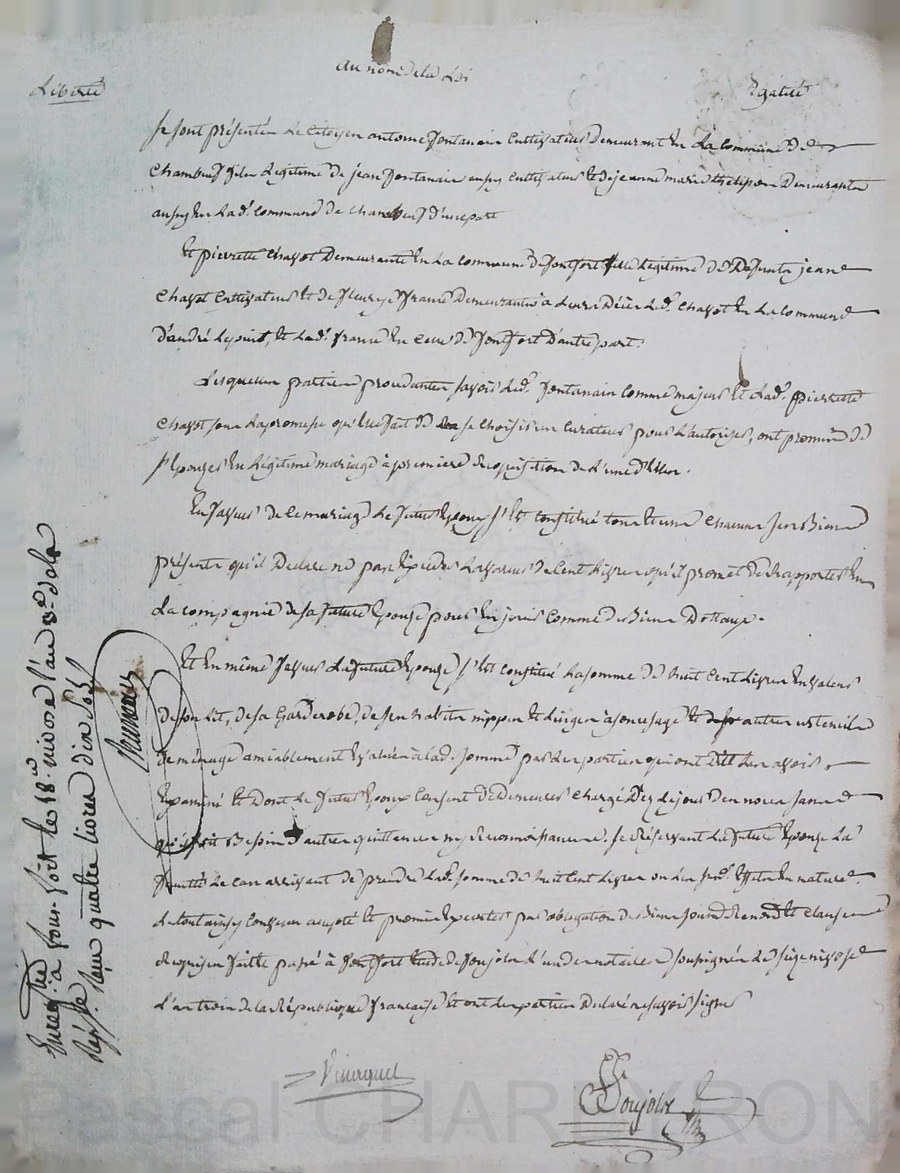 Liberté
au nom de la Loi
Egalité
Se sont présentés le Citoyen antoine fontanain Cultivateur demeurant En La Commune de
Chambeuf fils Légitime de jean fontanain aussy Cultivateur Et de jeanne marie demeurants
aussy En Lad. Commune de Chambeuf d'une part
Et pierrette Chazot Demeurante En La Commune de fontfort fille Légitime de Defunt jean
Chazot Cultivateur Et de france demeurants a Led. Chazot En La Commune
d'andré Et Lad. france En Celle de fontfort D'autre part.
Lesquelles parties procedantes savoir Led. fontanain Comme majeur Et Lad. pierrette
Chazot sous La promesse qu'Elle fait de se choisir un Curateur pour L'autoriser, ont promis de
s'Epouser En Légitime mariage à premiere Requisition de L'une d'Elles.
En faveur de Ce mariage Le futur Epoux s'Est Constitué tous Et uns Chacuns ses Biens
présents qu'il Declare ne pas Exceder La valeur de Cent Livres qu'il promet de Rapporter En
La compagnie de sa future Epouse pour En jouir Comme de Biens Dottaux.
Et En même faveur La future Epouze s'Est Constitué La somme de huit Cent Livres En valeur
de son Lit, de sa Garderobe, de ses habits nippes Et Linges à son usage Et autres ustenciles
de ménage amiablement Evalués à lad. somme par Les parties qui ont dit Les avoir
Examiné Et Dont Le futur Epoux Consent de Demeurer Chargé Dez Le jour des noces sans
qu'il soit Besoin d'autre quittance ny Reconnoissance, se Réservant La future Epouze La
faculté Le Cas arrivant de prendre Lad. somme de huit Cent Livres ou Les Effets En nature.
Le tout ainsy Convenu accepté Et promis Executer par obligation de Biens Et Clauses
Requises faitte passé à fontfort Etude de Soujolx L'un des notaires soussignés Le seize nivose
L'an trois de La République française Et ont Les parties Declaré ne savoir signer
Enregistré à four fort le 18. nivose l'an 3e. de la
Rép. Reçu quatre livres dix sols
Soujolx
Pascal CHARLEYRON